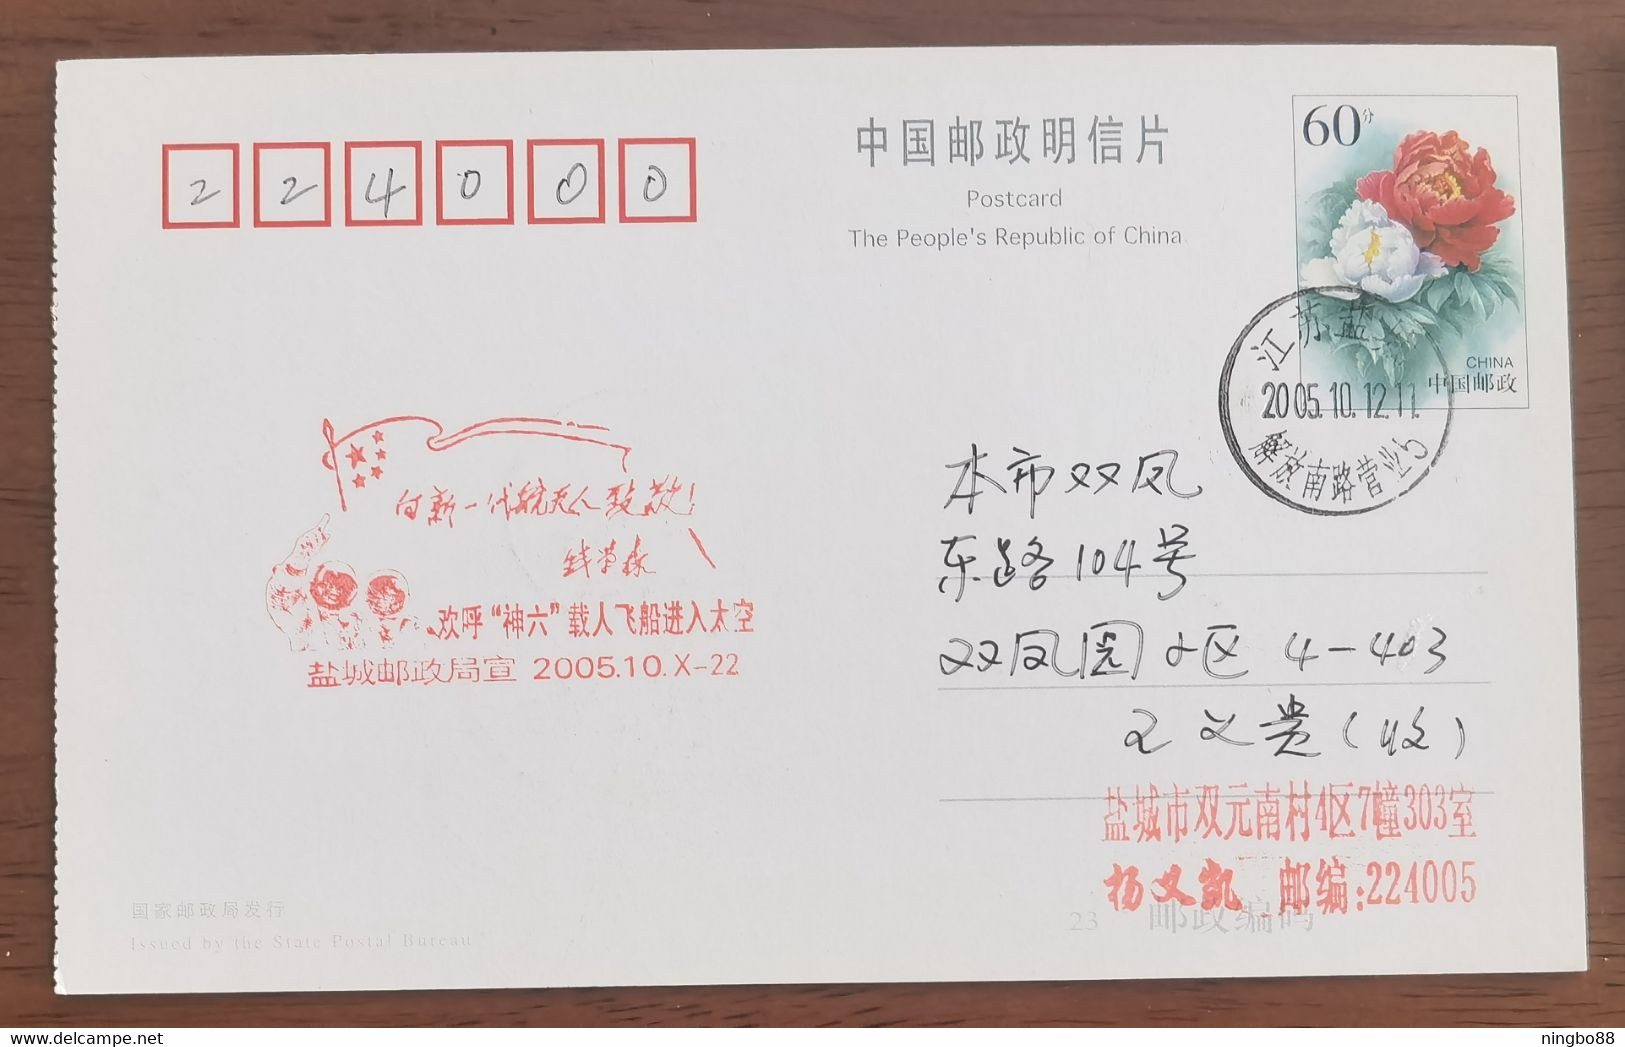 224000
中国邮政明信片
Postcard
The People's Republic of China
60分
CHINA
中国邮政
江苏盐
2005.10.12.11.
解放南路营业5
本市双凤
东路104号
双凤园小区 4-403
王义贵(收)
向新一代航天人致敬!
钱学森
欢呼“神六”载人飞船进入太空
盐城邮政局宣 2005.10.X-22
盐城市双元南村4区7幢303室
杨义凯 邮编:224005
23 邮政编码
国家邮政局发行
Issued by the State Postal Bureau
ningbo88